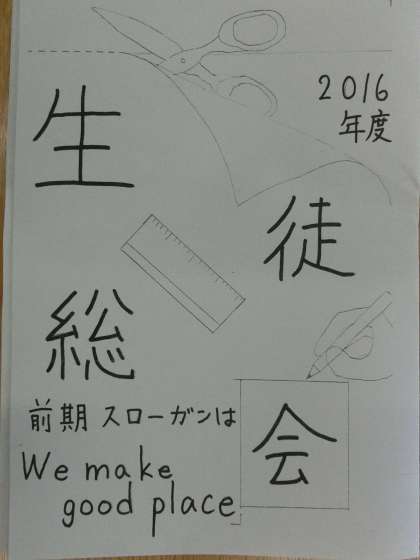 2016
年度
生
徒
総
会
前期 スローガンは
We make
good place